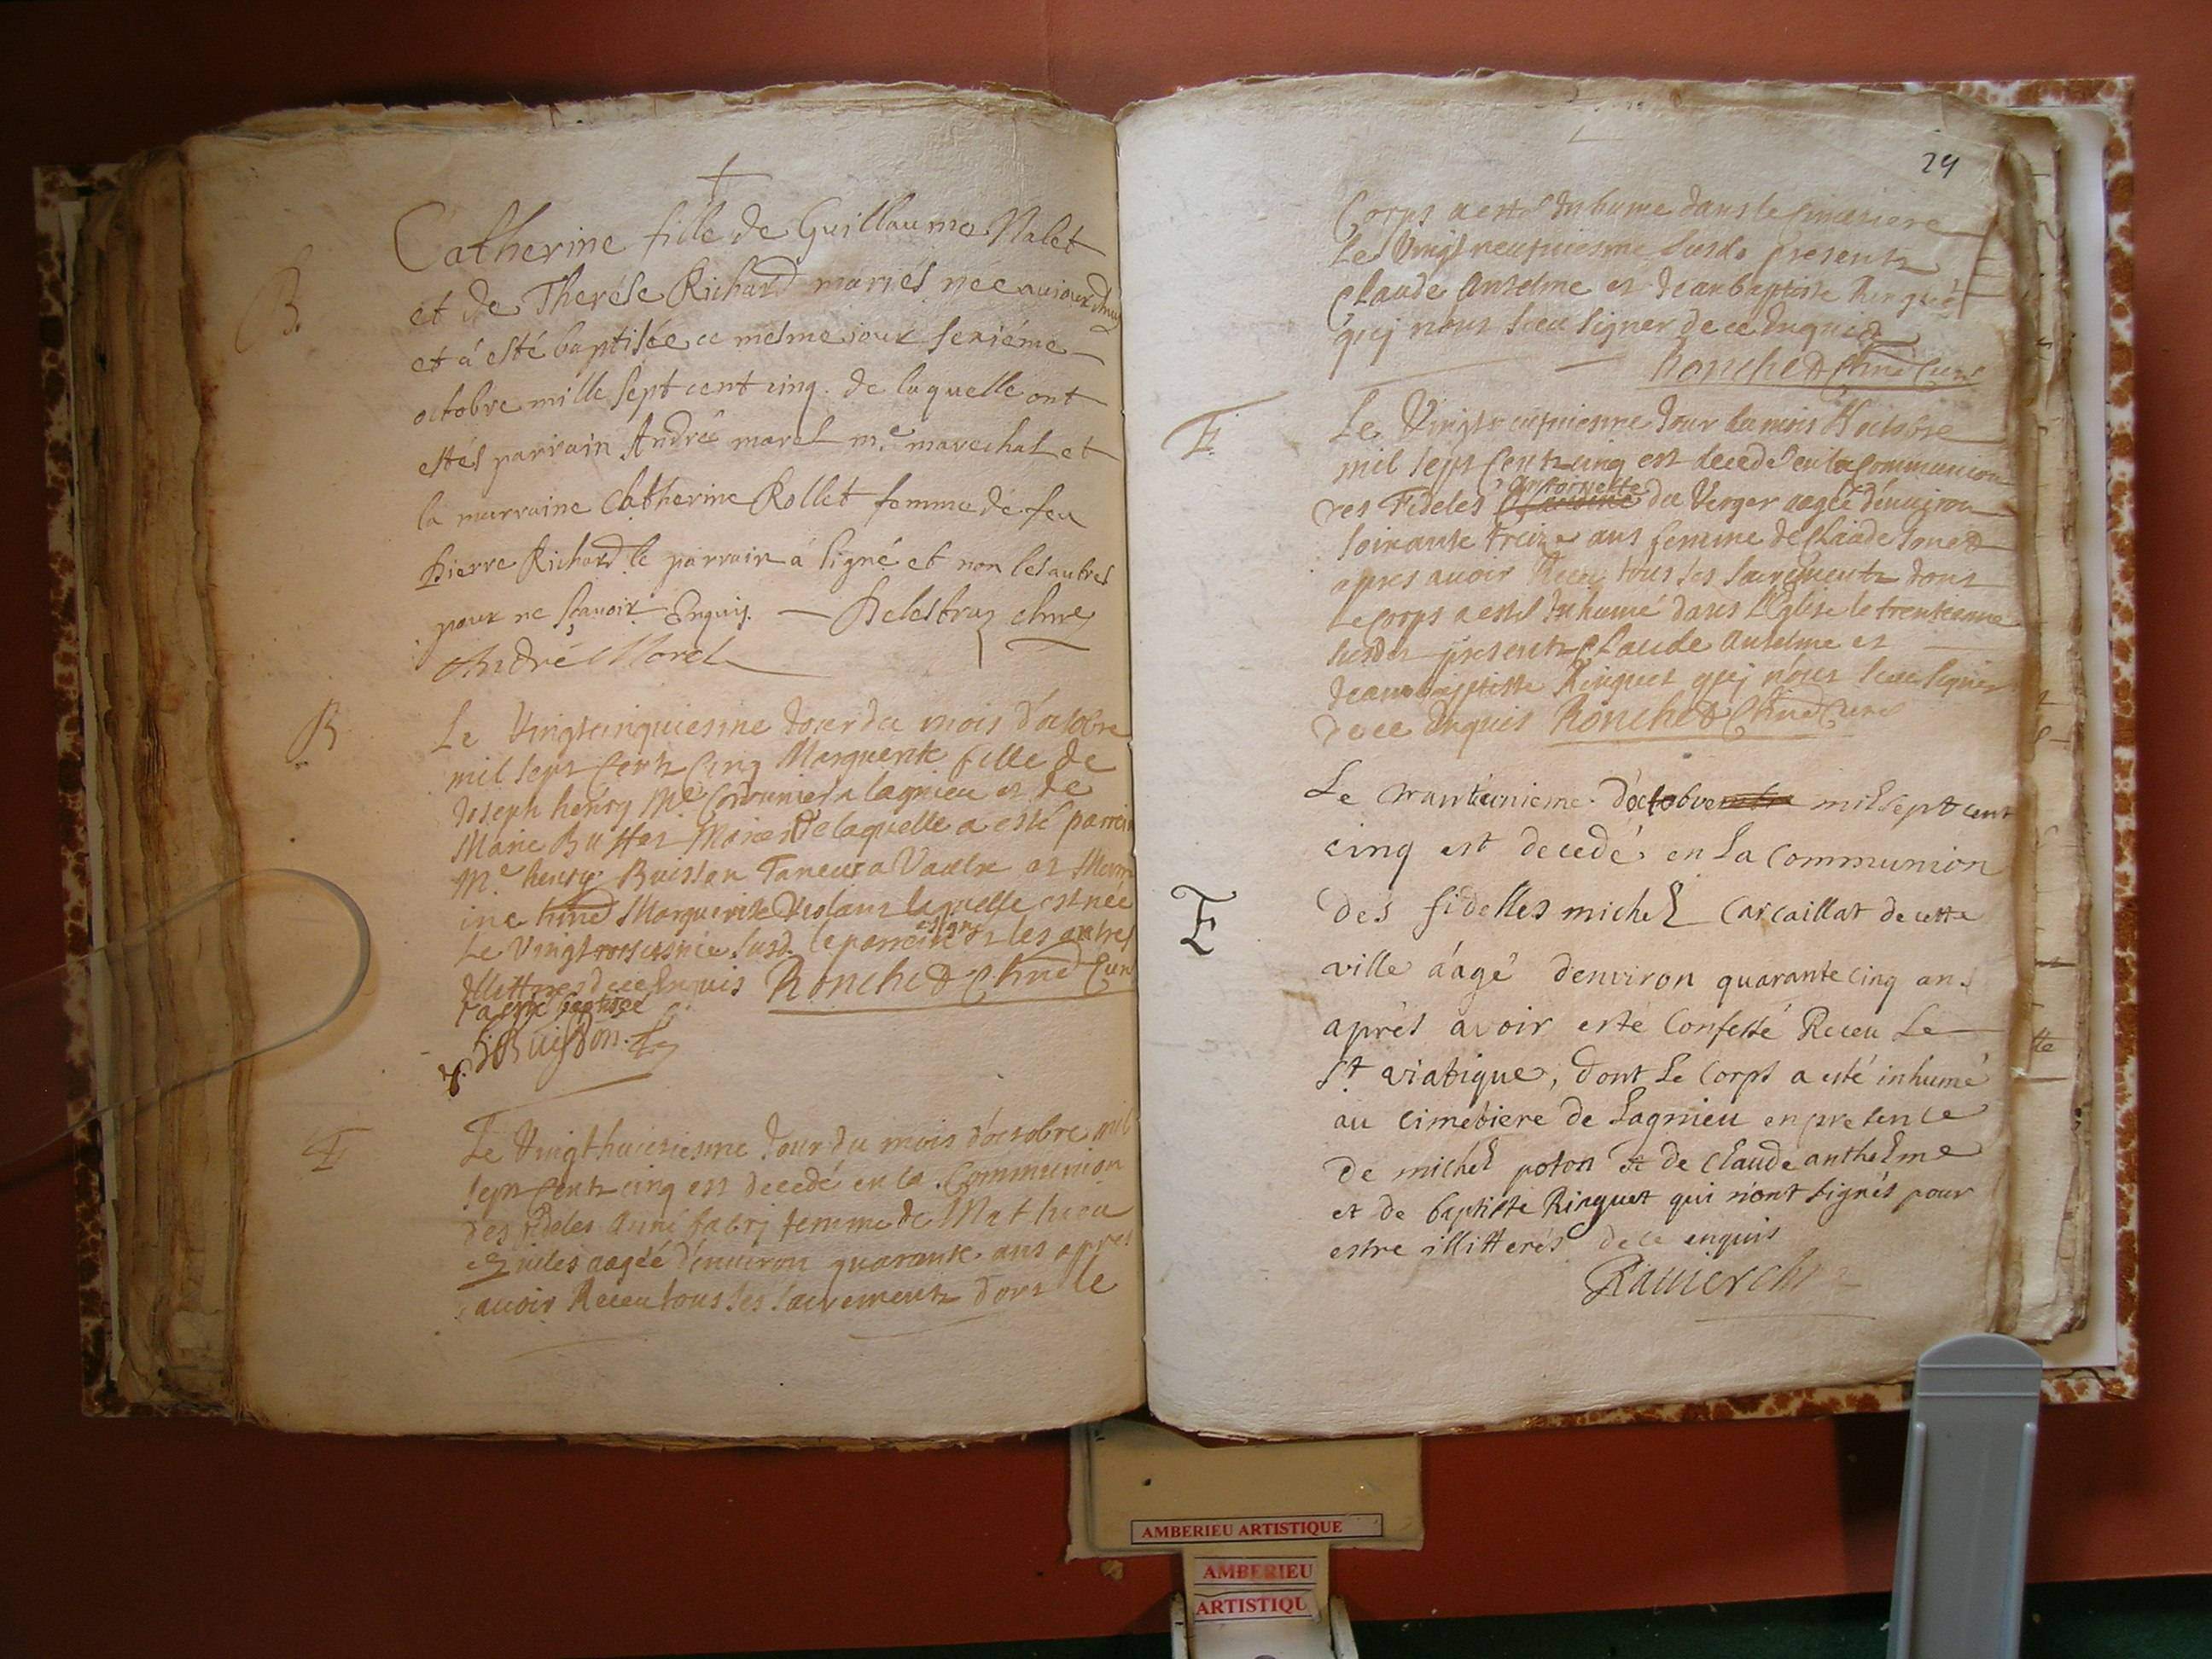 B.
Catherine fille de Guillaume Nalet
et de Therése Richard mariés née auiourdhuy
et á esté baptisée ce mesme jour sexiéme
octobre mille sept cent cinq. de laquelle ont
estés parrain André morel m.e marechal et
la marraine Catherine Rollet femme de feu
Pierre Richard le parrain á signé et non les autres
pour ne sçavoir Enquis. Delestraz
André Morel
B
Le Vingtcinquiesme Jour du mois d'octobre
mil sept Centz Cinq Marguerite fille de
Joseph henry M.e Cordonnier a lagnieu et de
Marie Mariés De laquelle a esté parrain
M.e henry Buisson Taneur a Vaulx et Marra
ine Marguerite laquelle est née
Le Vingtroisiesme susd. le parrain a signé les autres
Illettres de ce Enquis Ronchet Curé
baptisée
h Buisson
E
Le Vingthuictiesme Jour du mois d'octobre mil
sept Centz cinq est decedé en la Communion
des fideles Anne fabry femme de Mathieu
aagée d'environ quarante ans apres
avoir Receu tous ses sacrementz dont le
29
Corps a esté Inhume dans le Cimetiere
Le Vingt neufviesme susd. presentz
Claude Anselme et Jean baptiste Ringuet
quj nont sceu signer de ce Enquis
Ronchet Curé
E
Le Vingtneufviesme Jour du mois d'octobre
mil sept Centz cinq est decedé en la Communion
des Fideles Anthoinette du Verger aagée d'environ
soixante treize ans femme de Claude
apres avoir Receu tous ses sacrementz dont
Le Corps a esté Inhumé dans l'Eglise le trentiesme
susdit presentz Claude Anselme et
Jean baptiste Ringuet quj n'ont sceu signer
de ce Enquis Ronchet Curé
E
Le trantiunieme d'octobre mil sept cent
cinq est decedé en La Communion
des fidelles michel Carcaillat de cette
ville áagé denviron quarante cinq ans
aprés avoir esté Confessé Receu Le
St viatique, dont Le Corps a esté inhumé
au Cimetiere de Lagnieu en presence
de michel poton et de Claude anthelme
et de baptiste Ringuet qui n'ont signés pour
estre illitterés de ce enquis
Ravier
tte
AMBERIEU ARTISTIQUE
AMBERIEU
ARTISTIQU